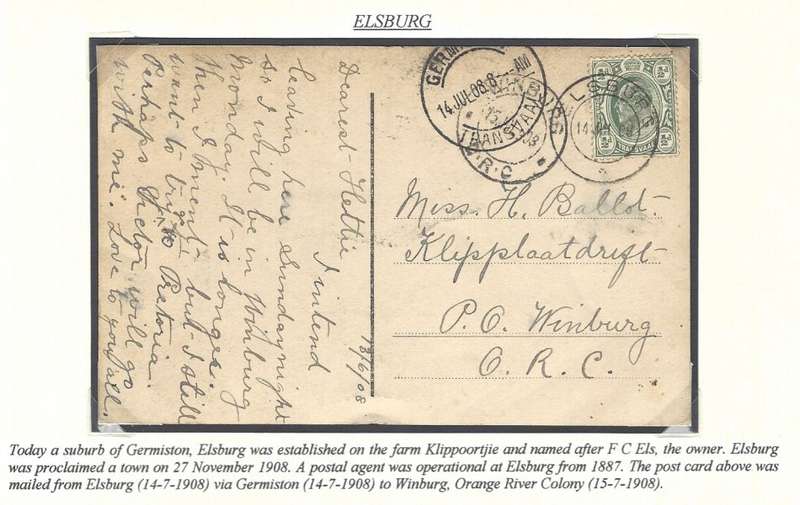 ELSBURG
13/6/08
Dearest Hettie
I intend
leaving here Sunday night
so I will be in Winburg
Monday. It is longer
then I ment, but I still
want to try & go to Pretoria.
Perhaps Hector will go
with me. Love to you all.
GERM
14 JUL 08 8 AM
TRANSVAAL
WINBURG
15
08
O.R.C
ELSBURG
14 JUL 08
Miss. H. Ballot.
Klipplaatdrift
P.O. Winburg
O.R.C.
Today a suburb of Germiston, Elsburg was established on the farm Klippoortjie and named after F C Els, the owner. Elsburg
was proclaimed a town on 27 November 1908. A postal agent was operational at Elsburg from 1887. The post card above was
mailed from Elsburg (14-7-1908) via Germiston (14-7-1908) to Winburg, Orange River Colony (15-7-1908).